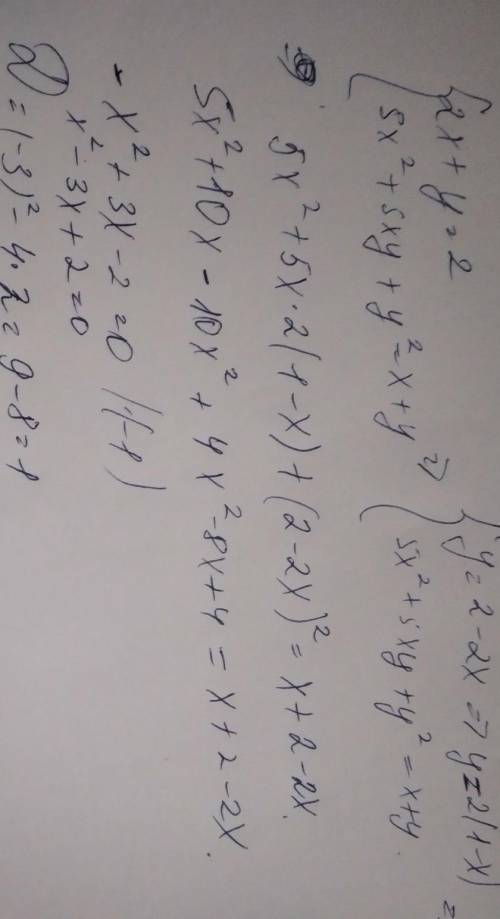 {2x + y = 2
5x² + 5xy + y² = x + y ⇒ {y = 2 - 2x ⇒ y = 2(1-x)
5x² + 5xy + y² = x + y.
5x² + 5x·2(1-x) + (2-2x)² = x + 2 - 2x.
5x² + 10x - 10x² + 4x² - 8x + 4 = x + 2 - 2x.
- x² + 3x - 2 = 0 //·(-1)
x² - 3x + 2 = 0
D = (-3)² - 4·2 = 9 - 8 = 1